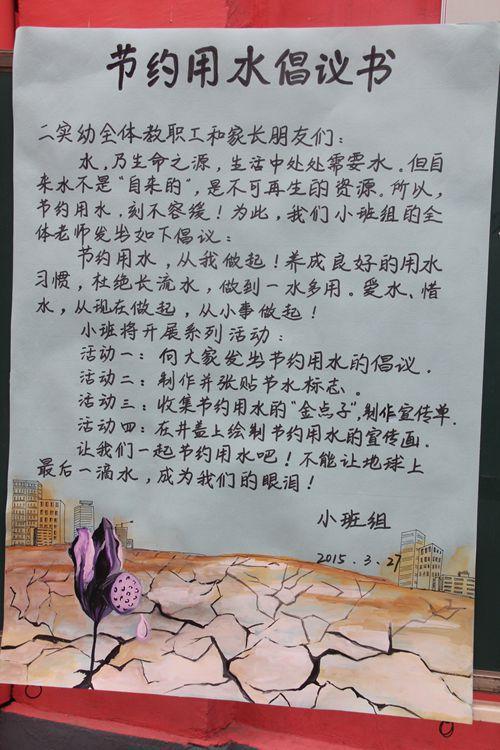 节约用水倡议书
二实幼全体教职工和家长朋友们：
水，乃生命之源，生活中处处需要水。但自
来水不是“自来的”，是不可再生的资源。所以，
节约用水，刻不容缓！为此，我们小班组的全
体老师发出如下倡议：
节约用水，从我做起！养成良好的用水
习惯，杜绝长流水，做到一水多用。爱水、惜
水，从现在做起，从小事做起！
小班将开展系列活动：
活动一：向大家发出节约用水的倡议．
活动二：制作并张贴节水标志。
活动三：收集节约用水的“金点子”，制作宣传单．
活动四：在井盖上绘制节约用水的宣传画．
让我们一起节约用水吧！不能让地球上
最后一滴水，成为我们的眼泪！
小班组
2015．3．27